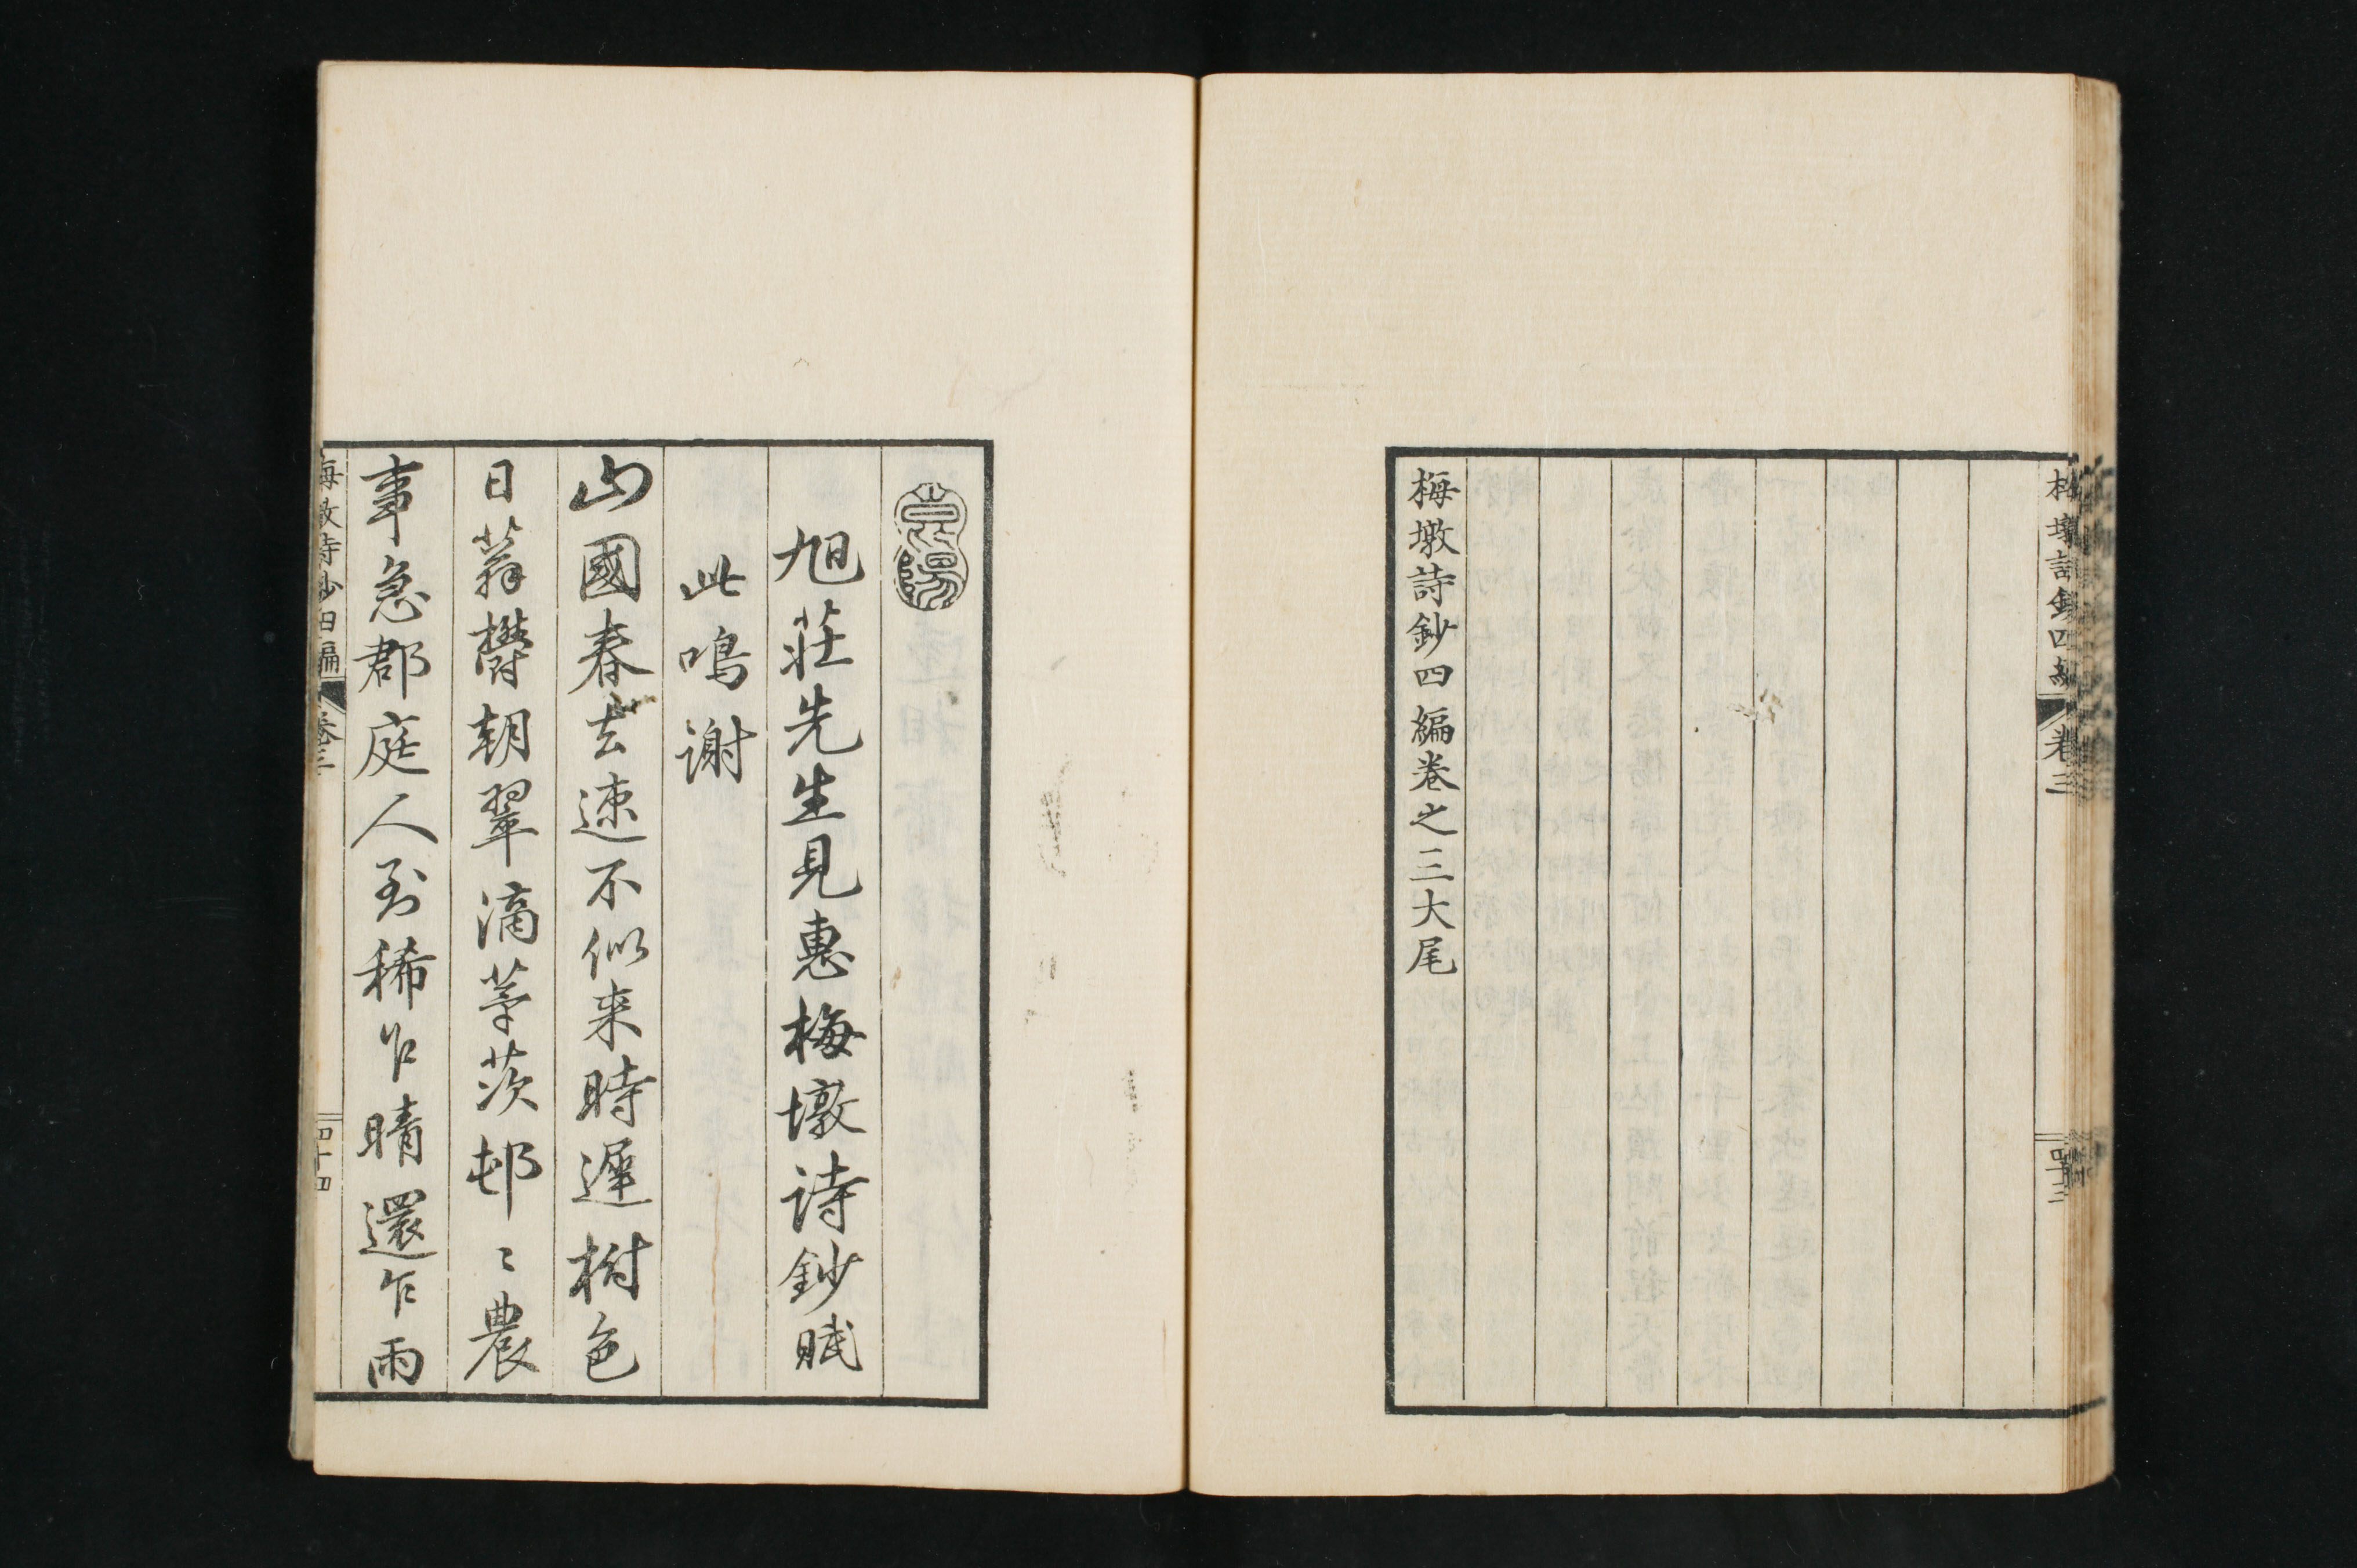 梅墩詩鈔四編
卷三
四十三
梅墩詩鈔四編卷之三大尾
旭莊先生見惠梅墩詩鈔賦
此鳴謝
山國春去速不似来時遲樹色
日蓊欝朝翠滴茅茨邨〻農
事急郡庭人到稀乍晴還乍雨
梅墩詩鈔四編
卷三
四十四